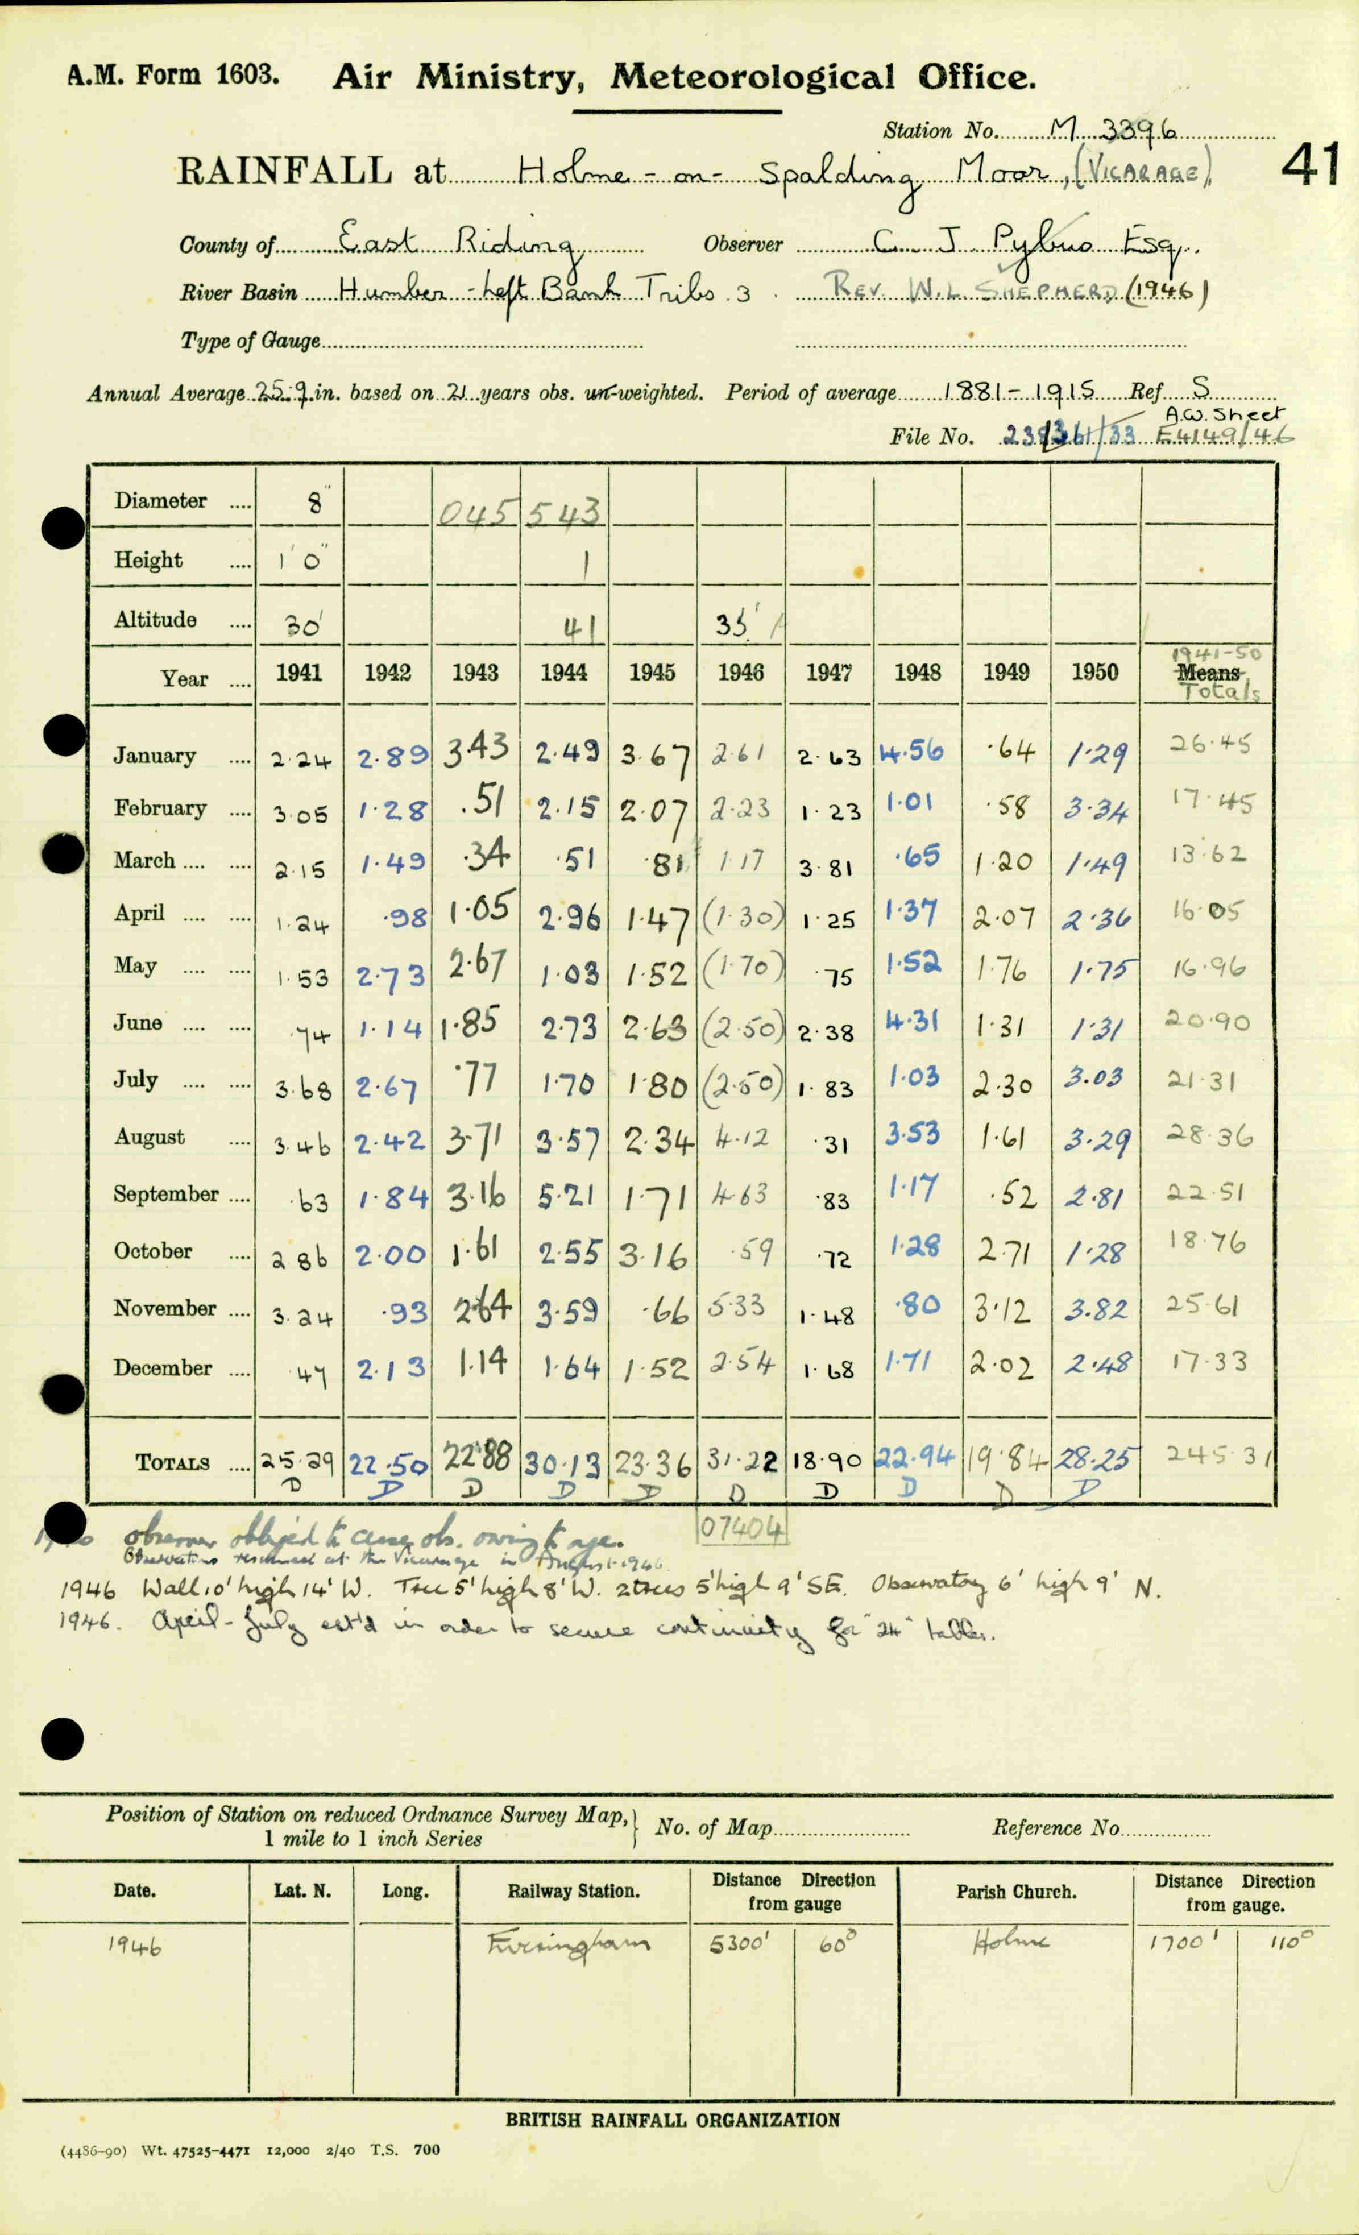 A.M. Form 1603. Air Ministry, Meteorological Office.
Station No. M 3396
RAINFALL at Holme-on-Spalding Moor, (VICARAGE)
41
County of East Riding Observer C. J. Pybus Esq.
River Basin Humber - Left Bank Tribs. 3. REV. W.L. SHEPHERD (1946)
Type of Gauge
Annual Average 25.9 in. based on 21 years obs. un-weighted. Period of average 1881-1915 Ref. S
A.W. Sheet
File No. /33 E4149/46
Diameter .... 8" 045 543
Height .... 1' 0" 1
Altitude .... 30' 41 35'
1941-50
Year .... 1941 1942 1943 1944 1945 1946 1947 1948 1949 1950 Means
Totals
January .... 2.24 2.89 3.43 2.49 3.67 2.61 2.63 4.56 .64 1.29 26.45
February .... 3.05 1.28 .51 2.15 2.07 2.23 1.23 1.01 .58 3.34 17.45
March .... .... 2.15 1.49 .34 .51 .81 1.17 3.81 .65 1.20 1.49 13.62
April .... .... 1.24 .98 1.05 2.96 1.47 (1.30) 1.25 1.37 2.07 2.36 16.05
May .... .... 1.53 2.73 2.67 1.03 1.52 (1.70) .75 1.52 1.76 1.75 16.96
June .... .... .74 1.14 1.85 2.73 2.63 (2.50) 2.38 4.31 1.31 1.31 20.90
July .... .... 3.68 2.67 .77 1.70 1.80 (2.50) 1.83 1.03 2.30 3.03 21.31
August .... 3.46 2.42 3.71 3.57 2.34 4.12 .31 3.53 1.61 3.29 28.36
September .... .63 1.84 3.16 5.21 1.71 4.63 .83 1.17 .52 2.81 22.51
October .... 2.86 2.00 1.61 2.55 3.16 .59 .72 1.28 2.71 1.28 18.76
November .... 3.24 .93 2.64 3.59 .66 5.33 1.48 .80 3.12 3.82 25.61
December .... .47 2.13 1.14 1.64 1.52 2.54 1.68 1.71 2.02 2.48 17.33
TOTALS .... 25.29 22.50 22.88 30.13 23.36 31.22 18.90 22.94 19.84 28.25 245.31
D D D D D D D D D D
07404
observer obliged to cease obs. owing to age.
Observations resumed at the Vicarage in August 1946.
1946 Wall 10' high 14' W. Tree 5' high 8' W. 2 trees 5' high 9' SE. Observatory 6' high 9' N.
1946. April - July est'd in order to secure continuity for "24" tables.
Position of Station on reduced Ordnance Survey Map, } No. of Map Reference No.
1 mile to 1 inch Series
Date. Lat. N. Long. Railway Station. Distance Direction from gauge Parish Church. Distance Direction from gauge.
1946 Everingham 5300' 60° Holme 1700' 110°
BRITISH RAINFALL ORGANIZATION
(4486-90) Wt. 47525-4471 12,000 2/40 T.S. 700